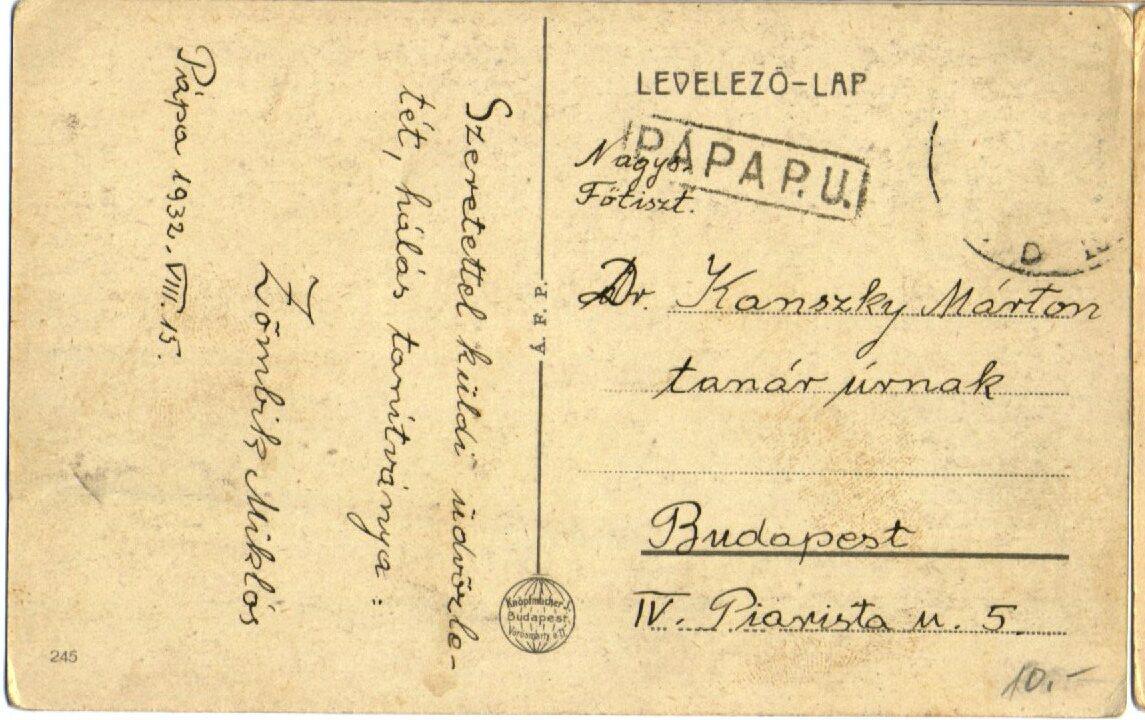 Pápa 1932. VIII. 15.
Szeretettel küldi üdvözle-
tét, hálás tanítványa:
Zömbik Miklós
245
Á. F. P.
Knöpfmacher J.
Budapest
LEVELEZŐ-LAP
PÁPA P.U.
Nagys.
Főtiszt.
Dr. Kanszky Márton
tanár úrnak
Budapest
IV. Piarista u. 5.
10.-